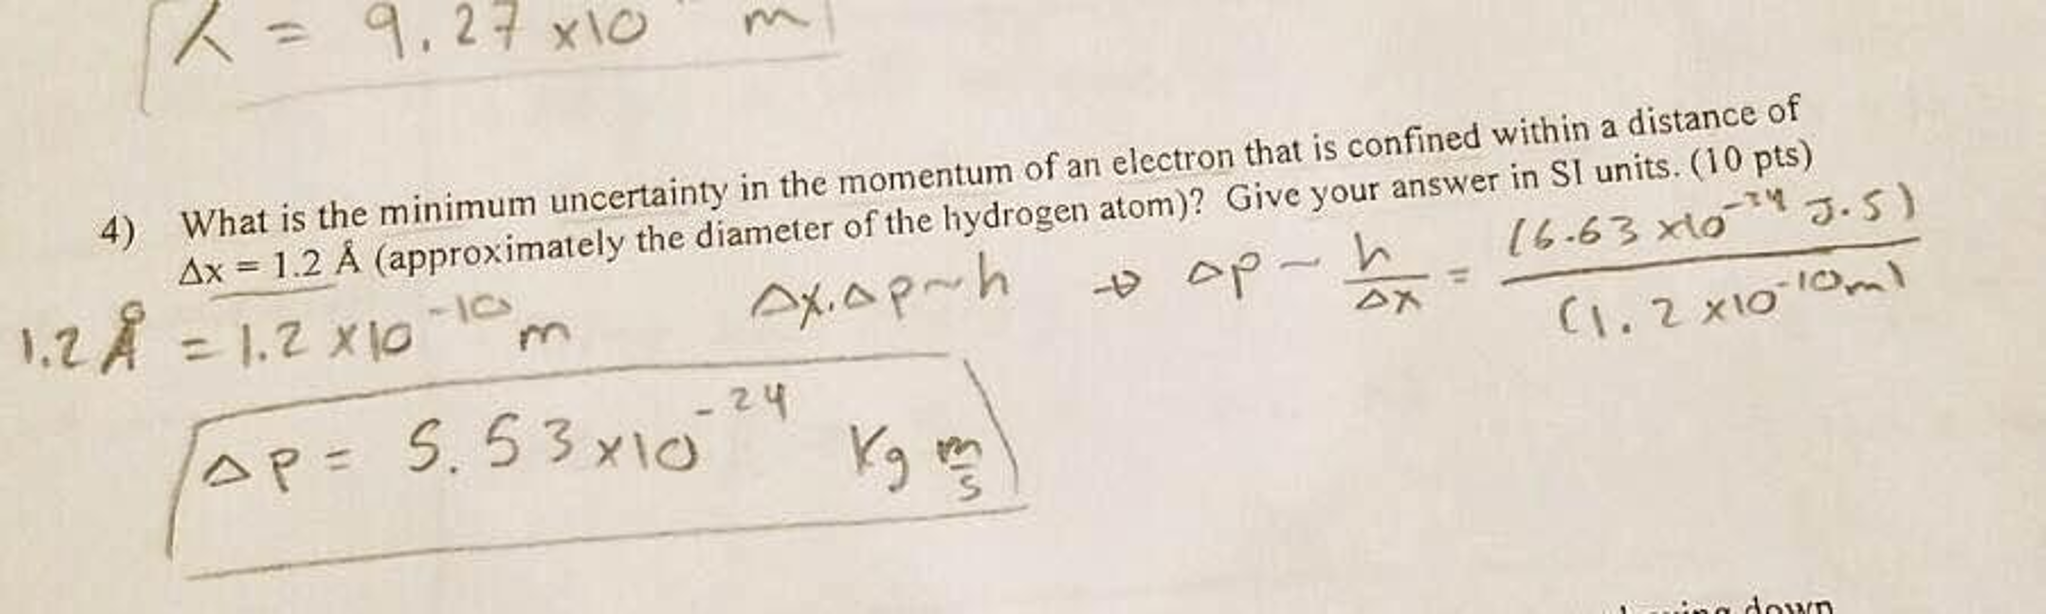 λ = 9.27 x10 m
4) What is the minimum uncertainty in the momentum of an electron that is confined within a distance of
Δx = 1.2 Å (approximately the diameter of the hydrogen atom)? Give your answer in SI units. (10 pts)
1.2 Å = 1.2 x10^-10 m
Δx.Δp~h → Δp ~ h/Δx = (6.63 x10^-34 J.s)/(1.2 x10^-10 m)
Δp = 5.53 x10^-24 kg m/s
down